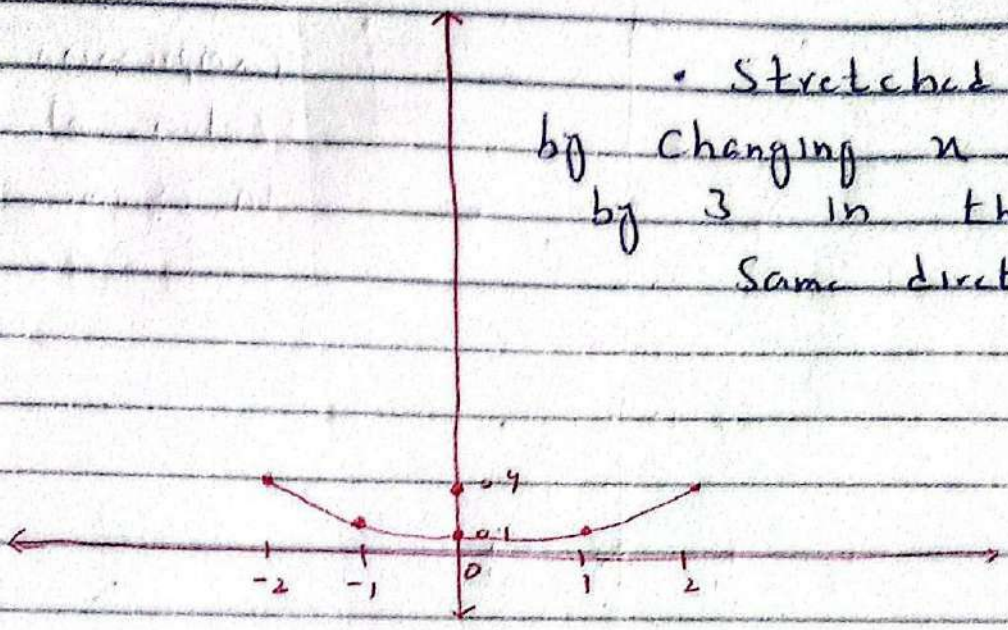 • Stretched
by Changing x
by 3 in th
Same direct
0.4
0.1
-2 -1 0 1 2